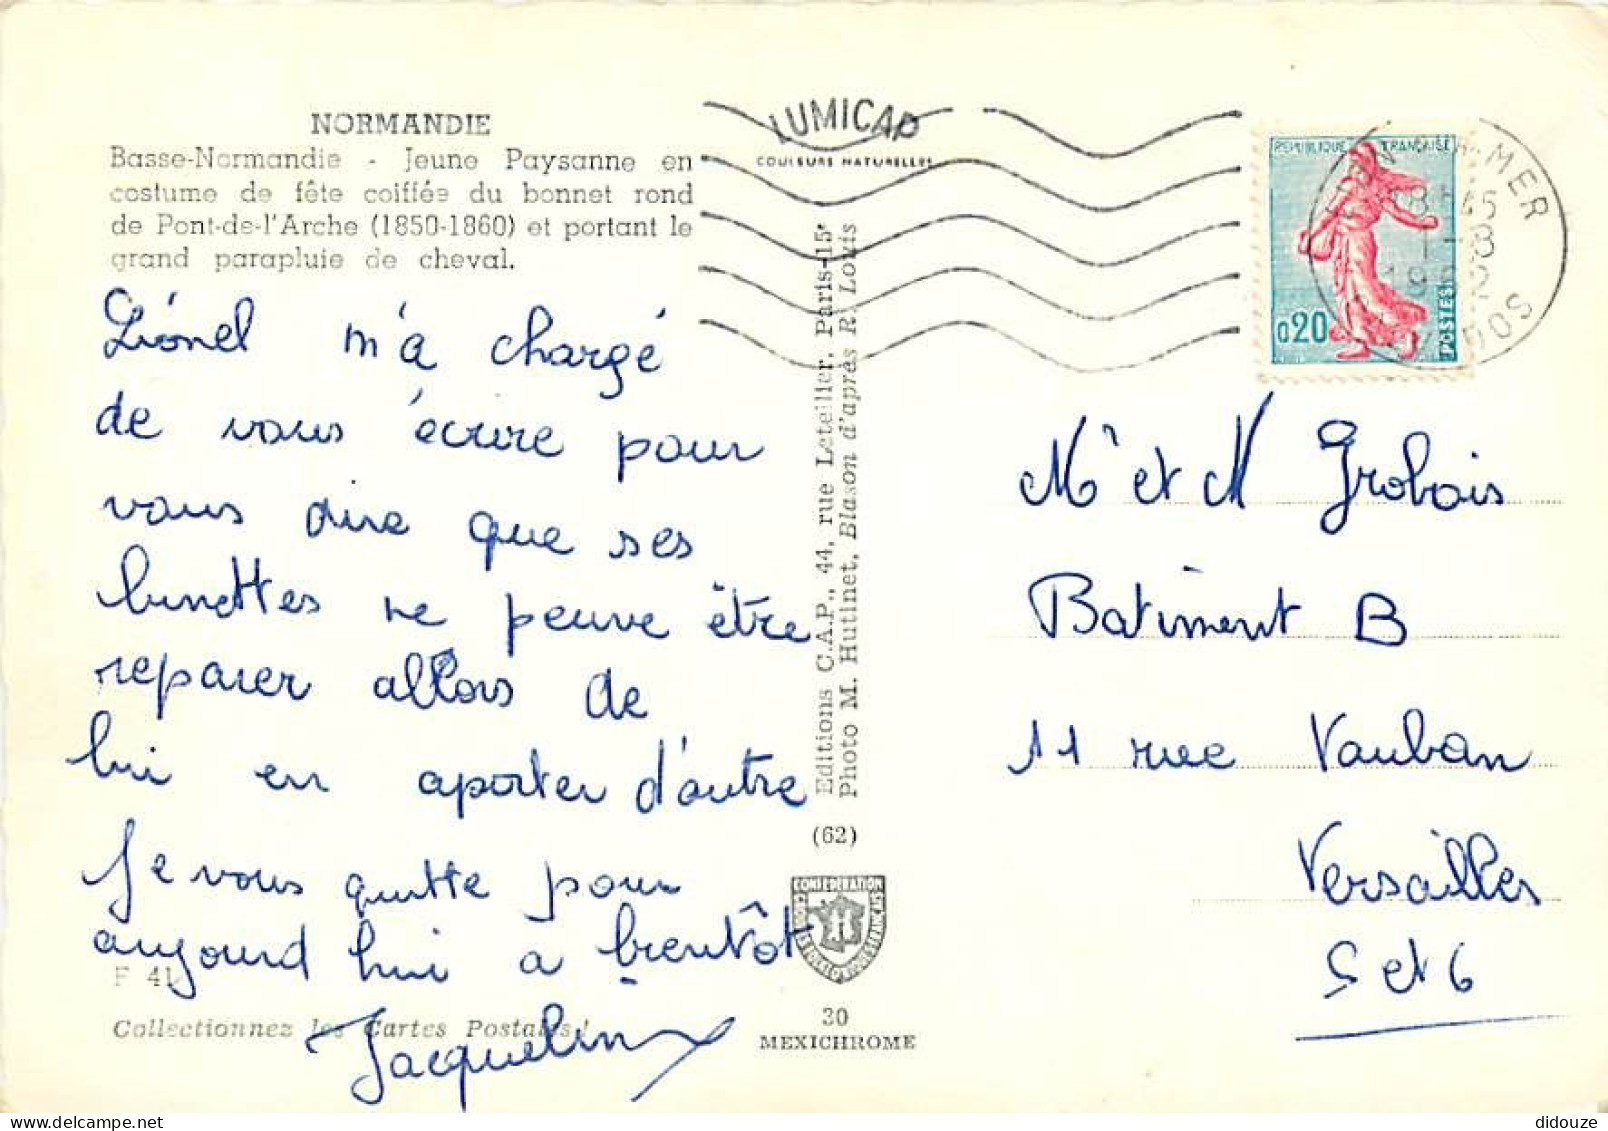 NORMANDIE
Basse-Normandie - Jeune Paysanne en
costume de fête coiffée du bonnet rond
de Pont-de-l'Arche (1850-1860) et portant le
grand parapluie de cheval.
Liónel m'a chargé
de vous écrire pour
vous dire que ses
lunettes ne peuve être
reparer allors de
lui en aporter d'autre
Je vous quitte pour
aujourd hui a bientôt
Jacqueline
F 41
Collectionnez les Cartes Postales!
LUMICAP
COULEURS NATURELLES
Editions C.A.P., 44, rue Letellier, Paris-15e
Photo M. Hutinet. Blason d'après R. Louis
(62)
CONFEDERATION
30
MEXICHROME
REPUBLIQUE FRANÇAISE
0,20
POSTES
MER
18H45
1-8
DOS
Mr et M Grobois
Batiment B
11 rue Vauban
Versailles
S et 6
didouze